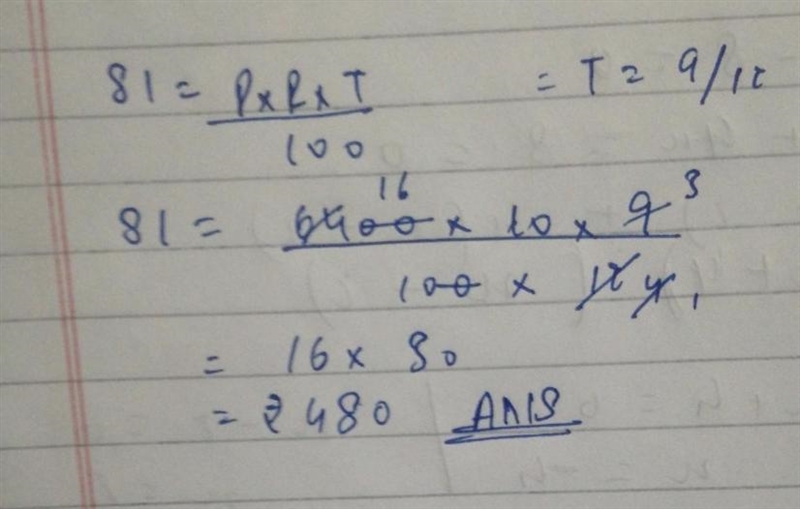 SI = P×R×T / 100 = T = 9/12
SI = 6400 16 × 10 × 9 3 / 100 × 12 4 1
= 16 × 30
= ₹ 480 ANS